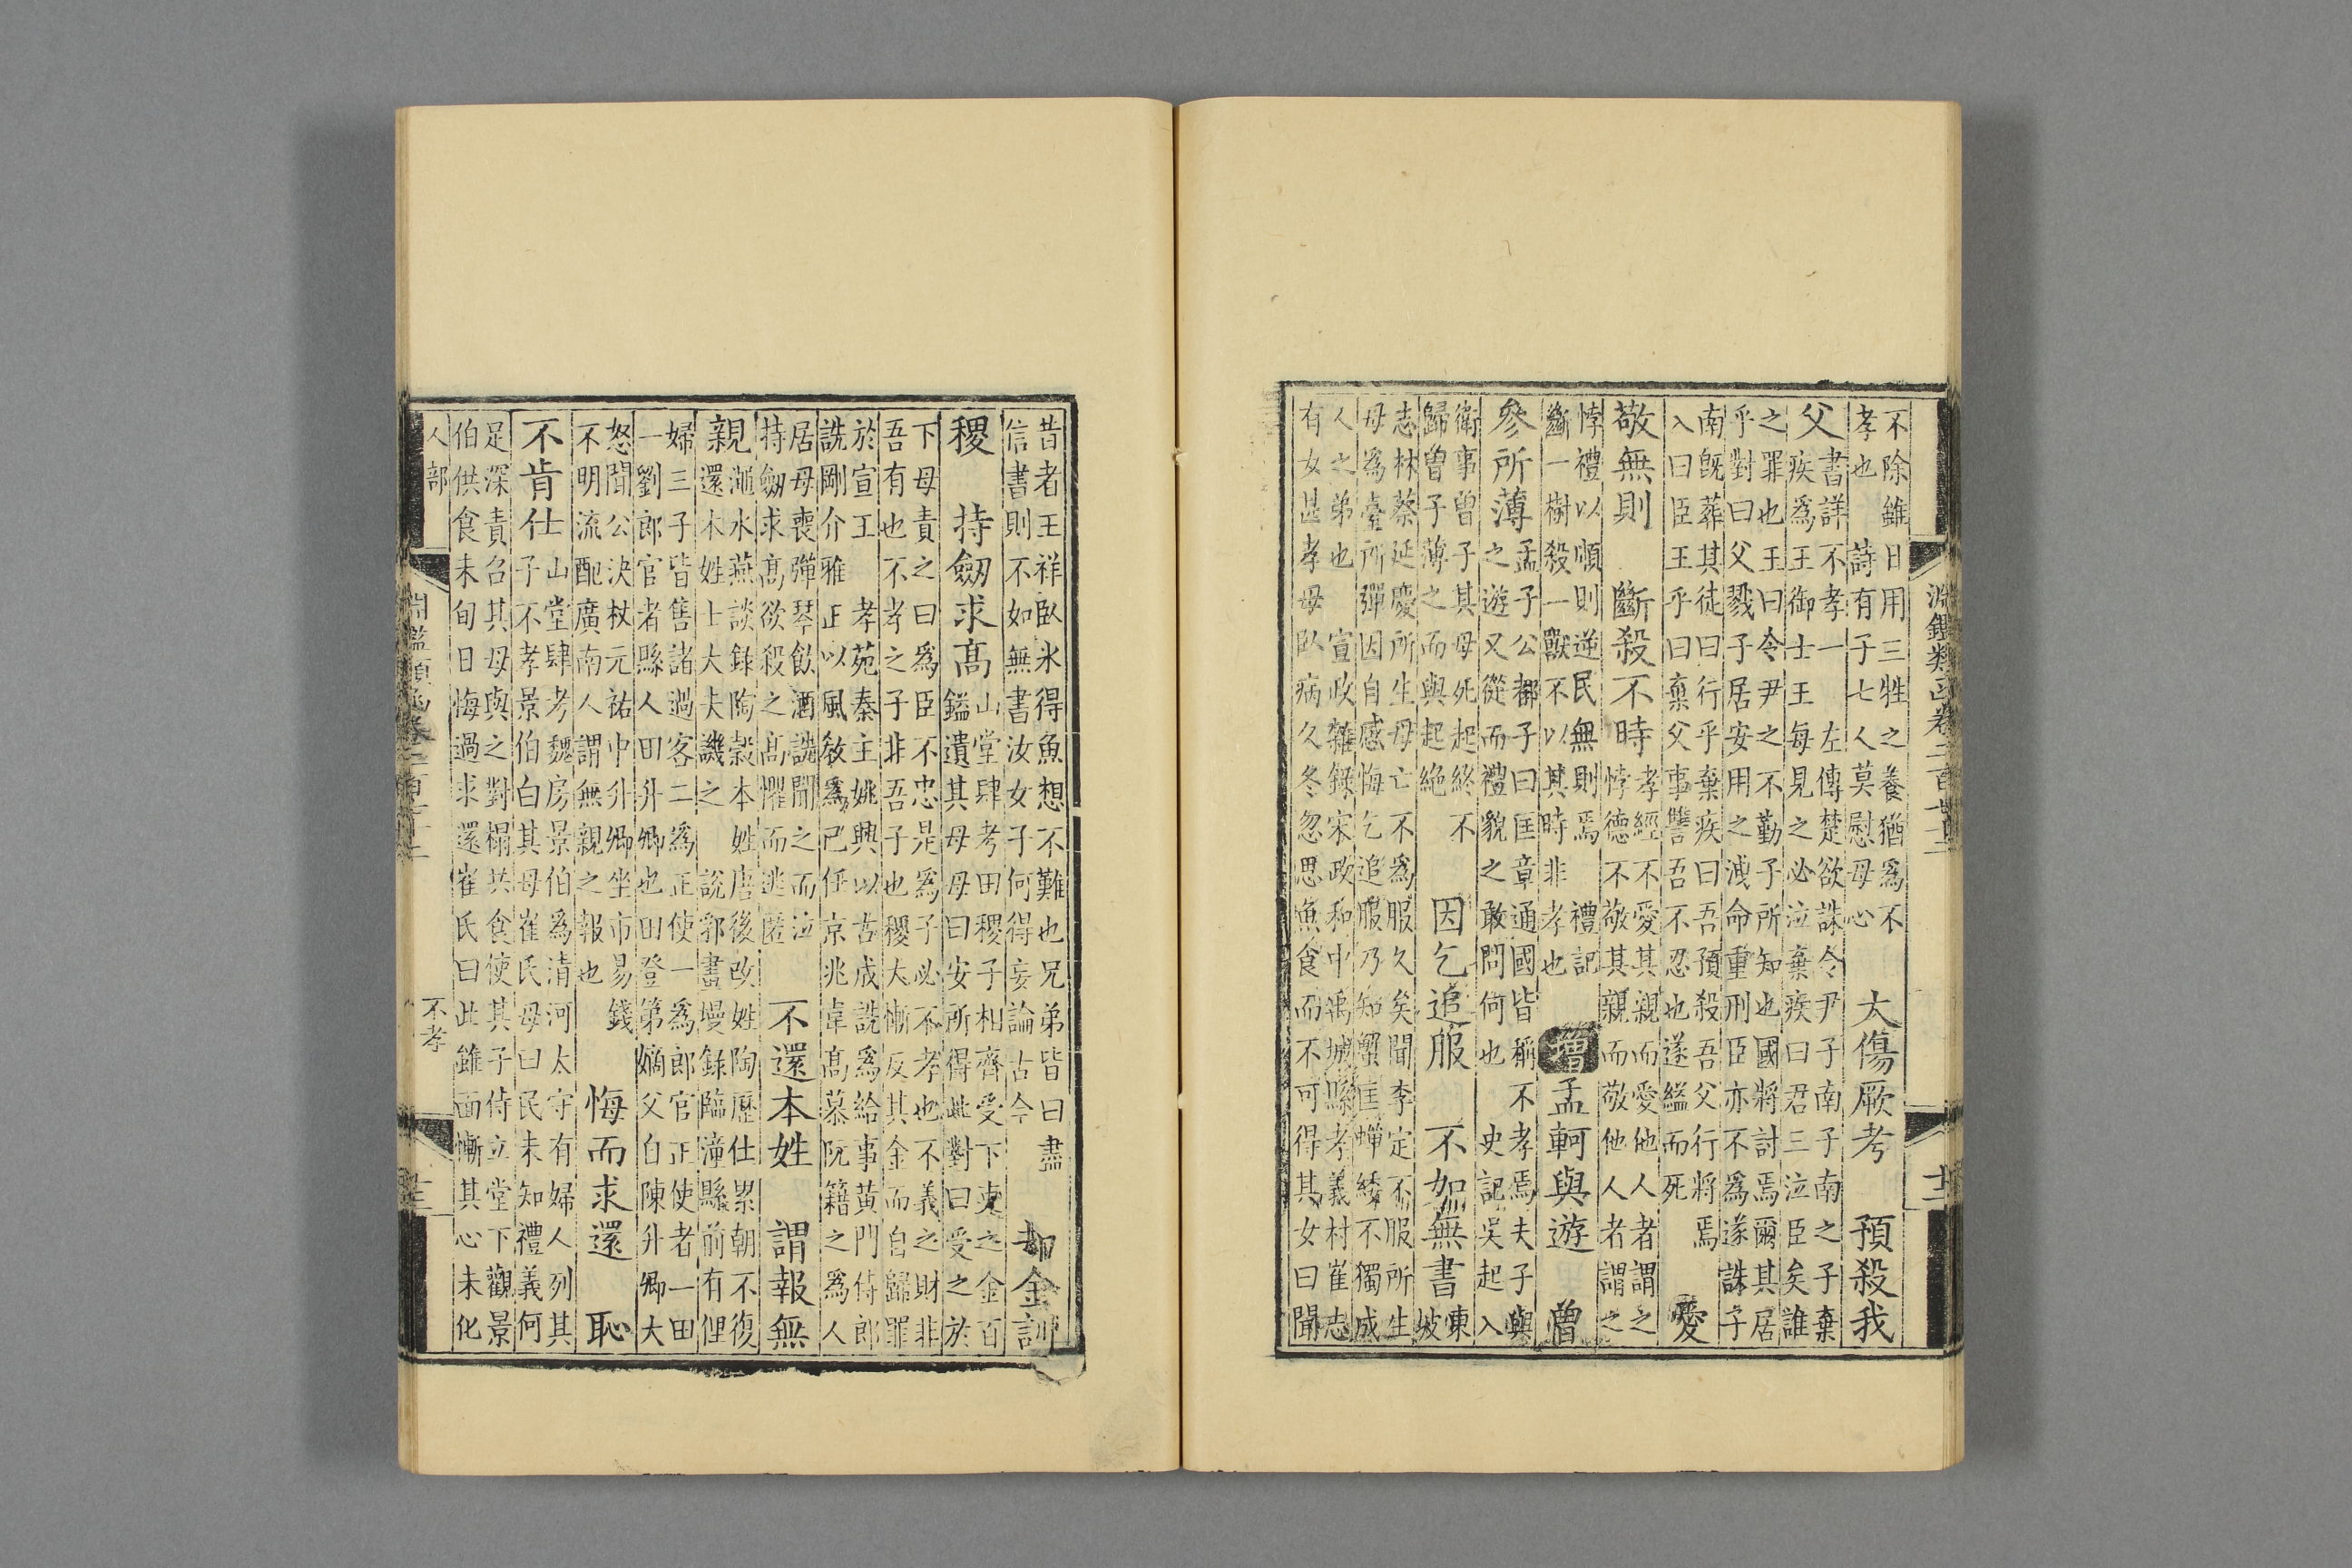 淵鑑類函卷二百七十二
十二
不除雖日用三牲之養猶為不
孝也　詩有子七人莫慰母心
大傷厥考　預殺我
父
書詳不孝一　左傳楚欲誅令尹子南子南之子棄
疾為王御士王每見之必泣棄疾曰君三泣臣矣誰
之罪也王曰令尹之不勤子所知也國將討焉爾其居
乎對曰父戮子居安用之洩命重刑臣亦不為遂誅子
南旣葬其徒曰行乎棄疾曰吾預殺吾父行將焉
入曰臣王乎曰棄父事讐吾不忍也遂縊而死
愛
敬無則　斷殺不時
孝經不愛其親而愛他人者謂之
悖德不敬其親而敬他人者謂之
悖禮以順則逆民無則焉　禮記
斷一樹殺一獸不以其時非孝也
增　孟軻與遊　曾
參所薄
孟子公都子曰匡章通國皆稱不孝焉夫子與
之遊又從而禮貌之敢問何也　史記吳起入
衛事曾子其母死起終不
歸曾子薄之而與起絕
因乞追服　不如無書
東
坡
志林蔡延慶所生母亡不為服久矣聞李定不服所生
母為臺所彈因自感悔乞追服乃知蟹匡蟬緌不獨成
人之弟也　宣政雜錄宋政和中禹城縣孝義村崔志
有女甚孝母臥病久冬忽思魚食而不可得其女曰聞
昔者王祥臥氷得魚想不難也兄弟皆曰盡
信書則不如無書汝女子何得妄論古今
却金訓
稷　持劒求高
山堂肆考田稷子相齊受下吏之金百
鎰遺其母母曰安所得此對曰受之於
下母責之曰為臣不忠是為子必不孝也不義之財非
吾有也不孝之子非吾子也稷大慚反其金而自歸罪
於宣王　孝苑秦主姚興以古成詵為給事黃門侍郎
詵剛介雅正以風敎為己任京兆韋高慕阮籍之為人
居母喪彈琴飲酒詵聞之而泣
持劒求高欲殺之高懼而逃匿
不還本姓　謂報無
親
澠水燕談錄陶穀本姓唐後改姓陶歷仕累朝不復
還本姓士大夫譏之　說郛畫墁錄臨潼縣前有俚
婦三子皆售諸過客二為正使一為郎官正使者一田
一劉郎官者縣人田升卿也田登第嫡父白陳升卿大
怒聞公決杖元祐中升卿坐市易錢
不明流配廣南人謂無親之報也
悔而求還　恥
不肯仕
山堂肆考魏房景伯為清河太守有婦人列其
子不孝景伯白其母崔氏母曰民未知禮義何
足深責召其母與之對榻共食使其子侍立堂下觀景
伯供食未旬日悔過求還崔氏曰此雖面慚其心未化
人部
不孝
淵鑑類函卷二百七十二
十三